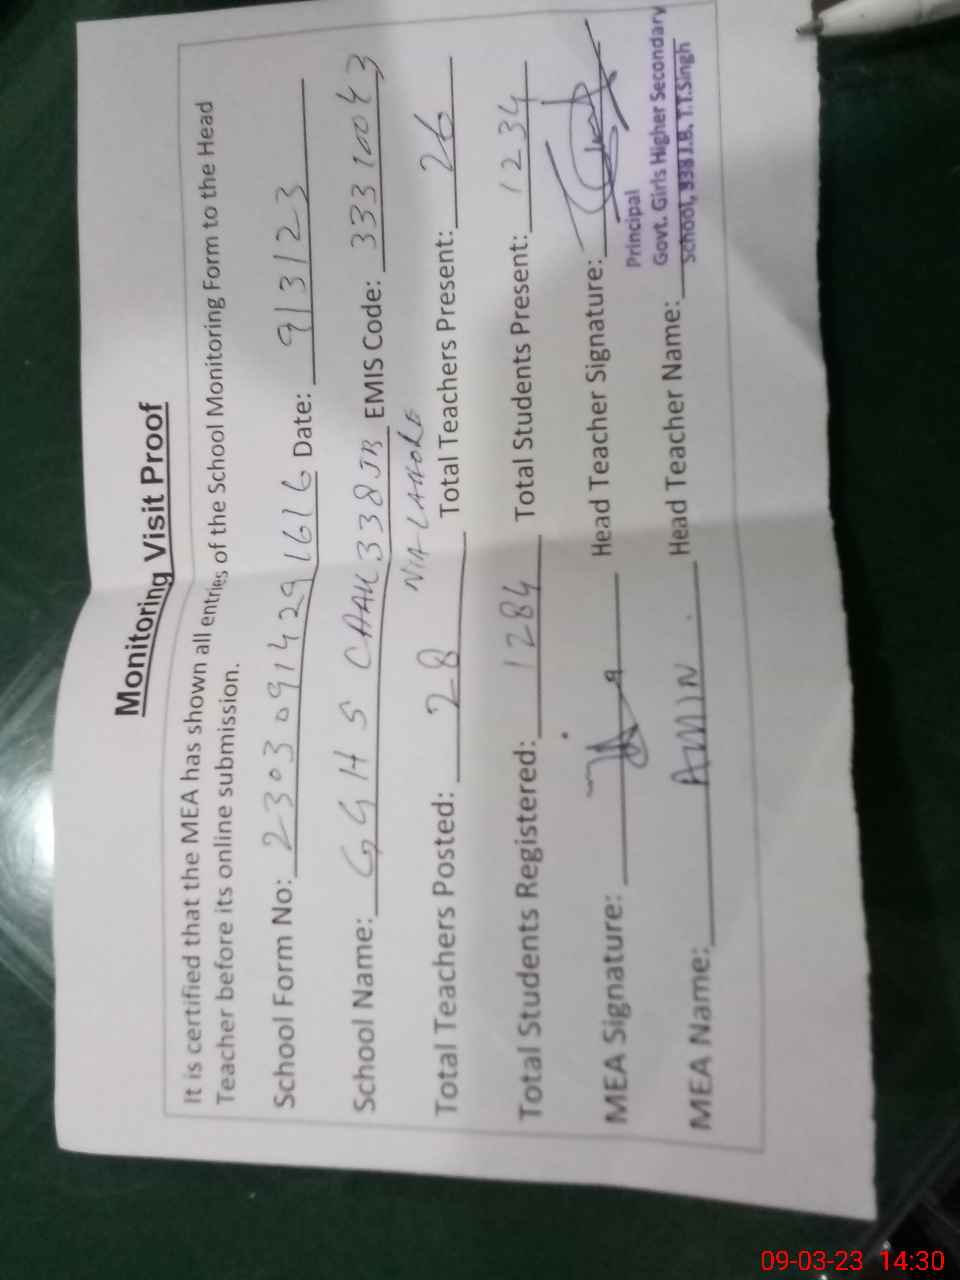 Monitoring Visit Proof
It is certified that the MEA has shown all entries of the School Monitoring Form to the Head
Teacher before its online submission.
School Form No: 23030914291616 Date: 9/3/23
School Name: GGHS CHAK 338JB EMIS Code: 33310043
NIA LAHORE
Total Teachers Posted: 28 Total Teachers Present: 26
Total Students Registered: 1284 Total Students Present: 1234
MEA Signature: Head Teacher Signature:
Principal
Govt. Girls Higher Secondary
School, 338 J.B, T.T.Singh
MEA Name: AMIN . Head Teacher Name:
09-03-23 14:30